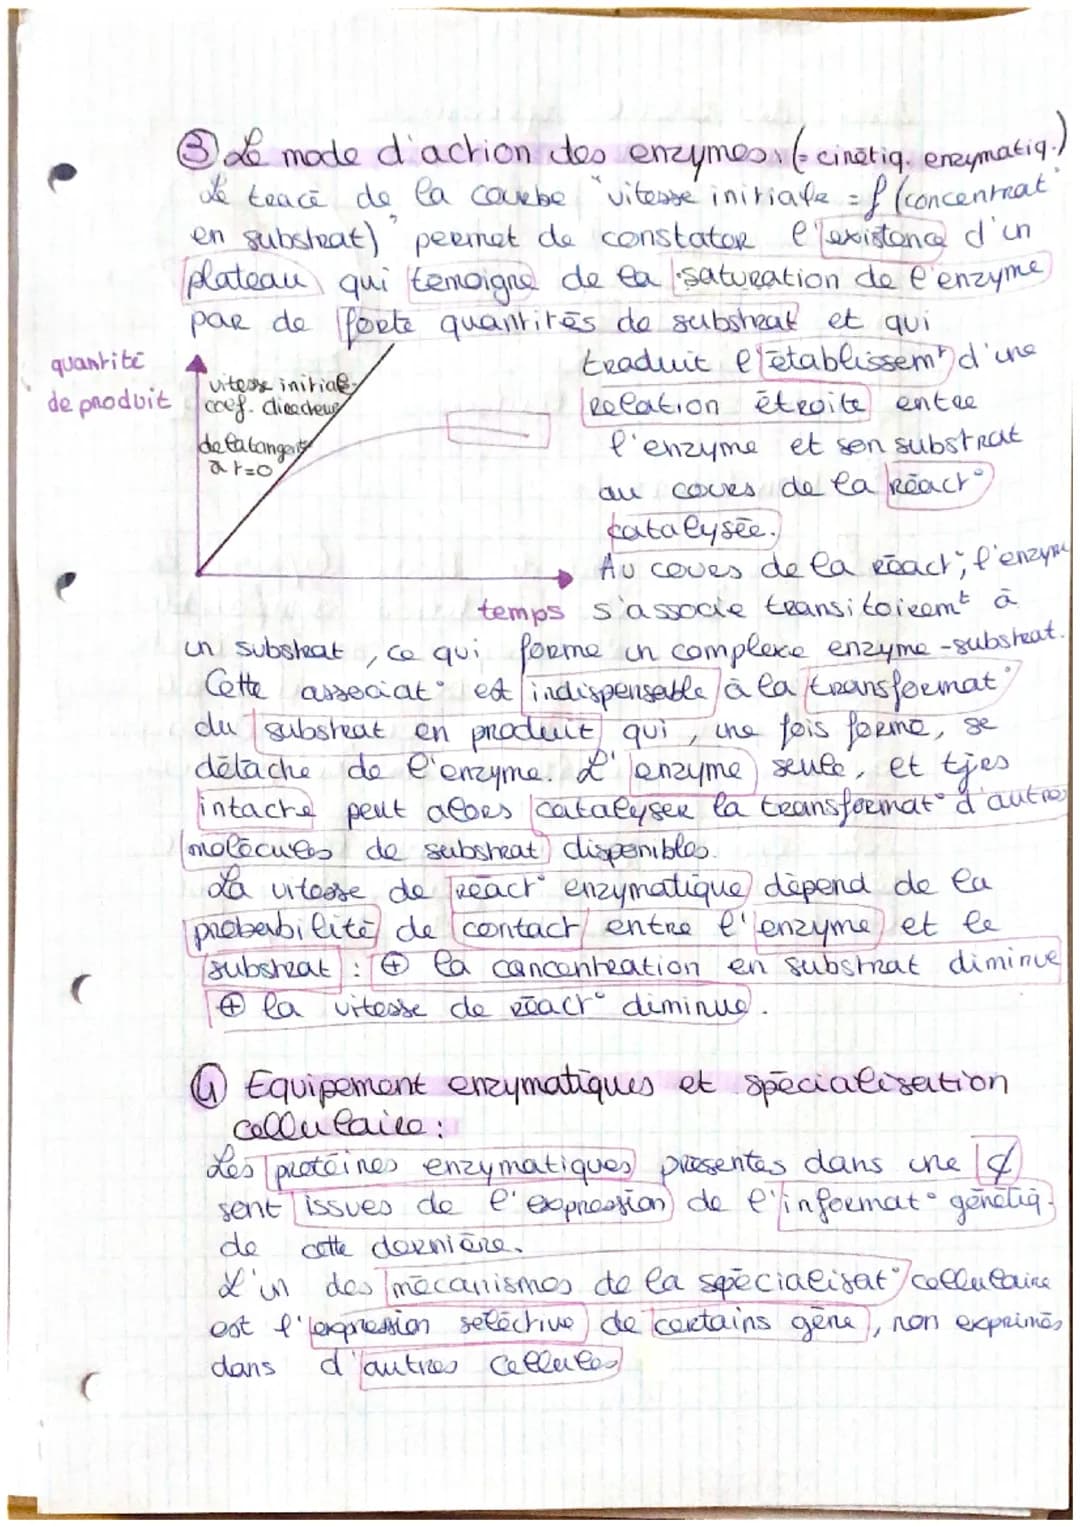 ③ Le mode d'action des enzymes (= cinétiq. enzymatiq.)
Le tracé de la courbe "vitesse initiale = f (concentrat°
en substrat)" permet de constater l'existence d'un
plateau qui témoigne de la saturation de l'enzyme
par de forte quantités de substrat et qui
traduit l'établissemt d'une
relation étroite entre
l'enzyme et son substrat
au cours de la réact°
catalysée.
quantité
de produit
vitesse initiale
coef. directeur
de la tangente
à t=0
temps
Au cours de la réact°, l'enzyme
s'associe transitoiremt à
un substrat, ce qui forme un complexe enzyme-substrat.
Cette associat° est indispensable à la transformat°
du substrat en produit qui, une fois formé, se
détache de l'enzyme. L'enzyme seule, et tjrs
intacte peut alors catalyser la transformat° d'autres
molécules de substrat disponibles.
La vitesse de réact° enzymatique dépend de la
probabilité de contact entre l'enzyme et le
substrat : ⊕ la concentration en substrat diminue
⊕ la vitesse de réact° diminue.
④ Equipement enzymatiques et spécialisation
cellulaire :
Les protéines enzymatiques présentes dans une ¢
sont issues de l'expression de l'informat° génétiq.
de cette dernière.
L'un des mécanismes de la spécialisat° cellulaire
est l'expression seléctive de certains gène, non exprimés
dans d'autres cellules